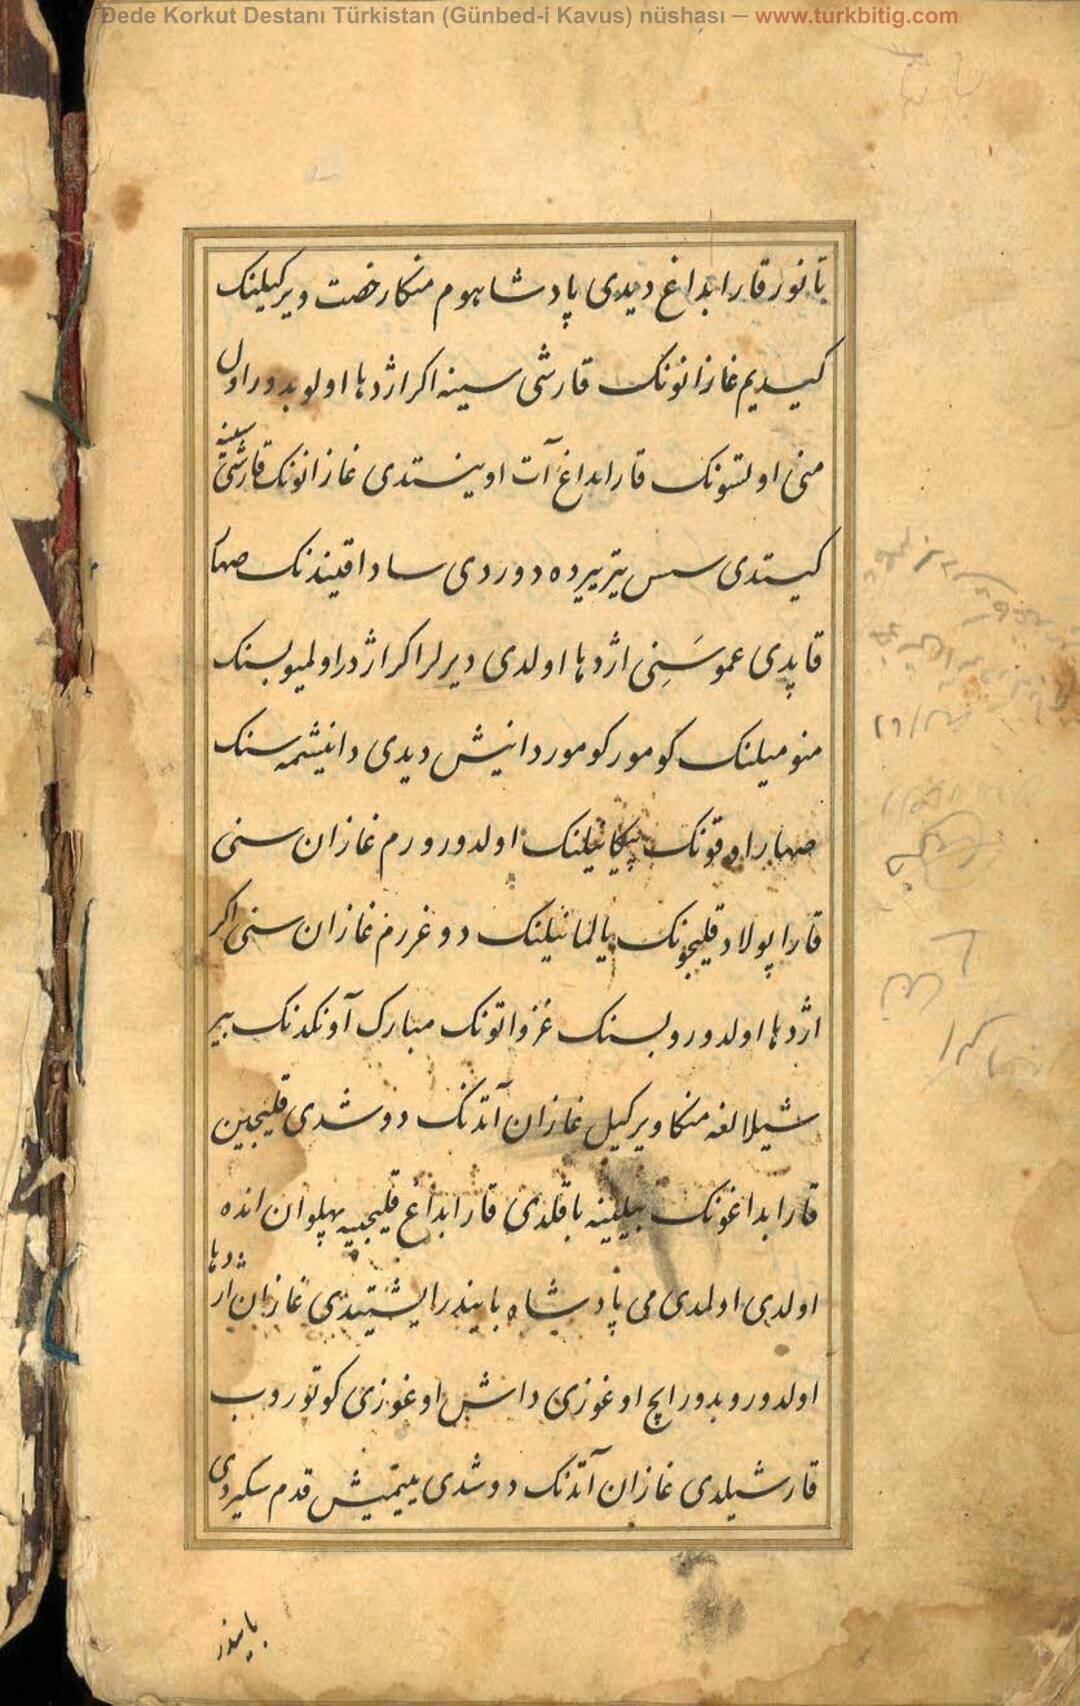 Dede Korkut Destanı Türkistan (Günbed-i Kavus) nüshası — www.turkbitig.com
تانور قارابداغ دیدی پادشاهوم منکا رخصت ویرکیلنک
کیدیم غازانونک قارشی سینه اکر اژدها اولوبدور اول
منی اولتسونک قارابداغ آت اویستدی غازانونک قارشی سینه
کیستدی سس یتر ییرده دوردی ساداقیندنک صهار
قاپدی عمو سَنِی اژدها اولدی دیرلر اکر اژدر اولمیوبسنک
منومیلنک کومور کومور دانیش دیدی دانیشمه سنک
صهار اوقونک پیکانیلنک اولدورورم غازان سنی
قارا پولاد قلیجونک یالمانیلنک دوغررم غازان سنی اکر
اژدها اولدوروبسنک غزواتونک مبارک آونکدنک بیر
شیلالغه منکا ویرکیل غازان آتدنک دوشدی قلیجین
قارابداغونک بیلینه باقلدی قارابداغ قلیجییه پهلوان انده
اولدی اولمدی می پادشاه بایندر ایشیتدی غازان اژدها
اولدوروبدور ایچ اوغوزی داش اوغوزی کوتوروب
قارشیلدی غازان آتدنک دوشدی ییتمیش قدم سکیردی
بایندر